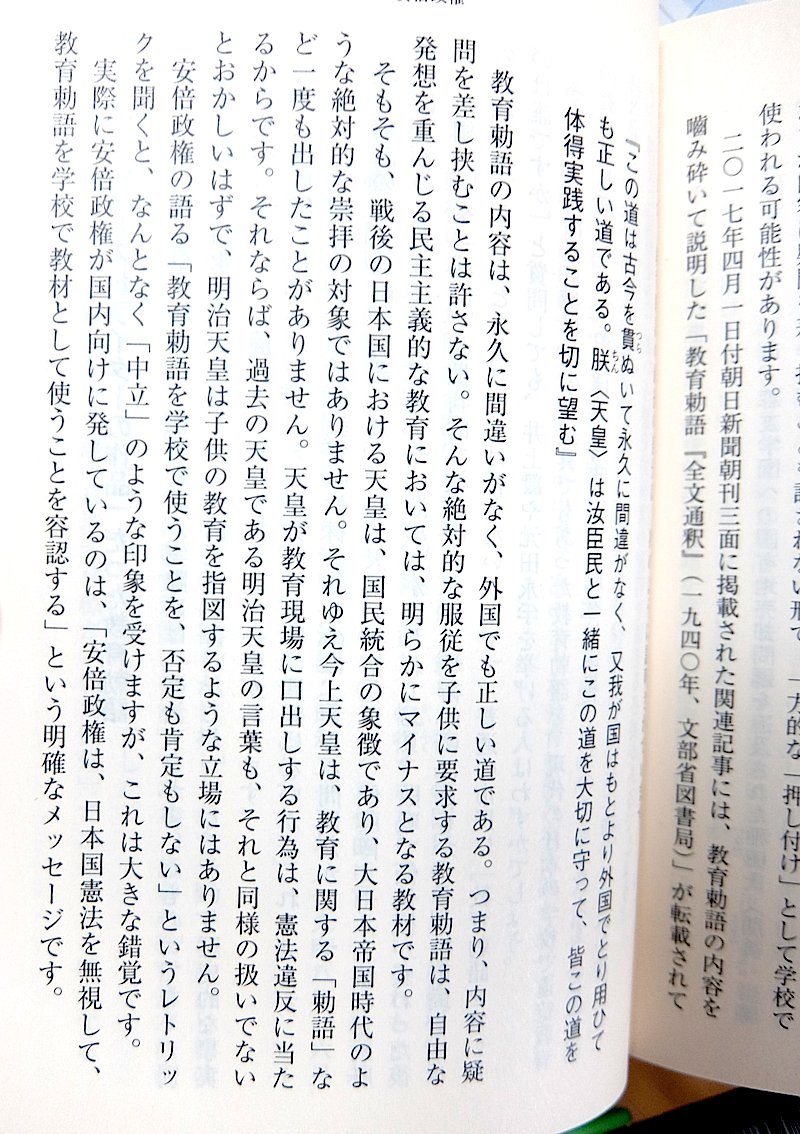 使われる可能性があります。
二〇一七年四月一日付朝日新聞朝刊三面に掲載された関連記事には、教育勅語の内容を
嚙み砕いて説明した「教育勅語『全文通釈』(一九四〇年、文部省図書局)」が転載されて
『この道は古今を貫ぬいて永久に間違がなく、又我が国はもとより外国でとり用ひて
も正しい道である。朕〈天皇〉は汝臣民と一緒にこの道を大切に守って、皆この道を
体得実践することを切に望む』
教育勅語の内容は、永久に間違いがなく、外国でも正しい道である。つまり、内容に疑
問を差し挟むことは許さない。そんな絶対的な服従を子供に要求する教育勅語は、自由な
発想を重んじる民主主義的な教育においては、明らかにマイナスとなる教材です。
そもそも、戦後の日本国における天皇は、国民統合の象徴であり、大日本帝国時代のよ
うな絶対的な崇拝の対象ではありません。それゆえ今上天皇は、教育に関する「勅語」な
ど一度も出したことがありません。天皇が教育現場に口出しする行為は、憲法違反に当た
るからです。それならば、過去の天皇である明治天皇の言葉も、それと同様の扱いでない
とおかしいはずで、明治天皇は子供の教育を指図するような立場にはありません。
安倍政権の語る「教育勅語を学校で使うことを、否定も肯定もしない」というレトリッ
クを聞くと、なんとなく「中立」のような印象を受けますが、これは大きな錯覚です。
実際に安倍政権が国内向けに発しているのは、「安倍政権は、日本国憲法を無視して、
教育勅語を学校で教材として使うことを容認する」という明確なメッセージです。